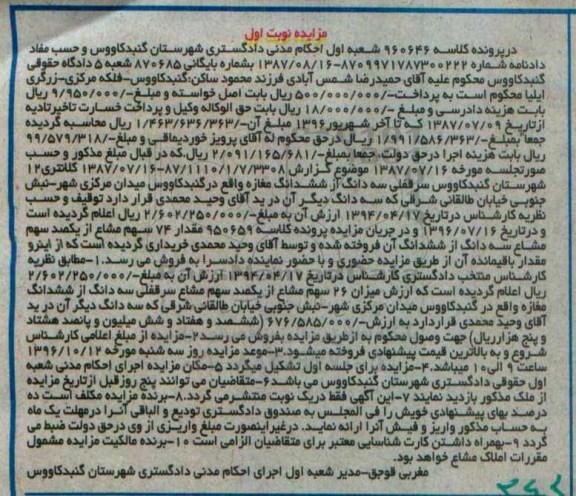 مزایده نوبت اول
درپرونده کلاسه ۹۶۰۶۴۶ شعبه اول احکام مدنی دادگستری شهرستان گنبدکاووس و حسب مفاد
دادنامه شماره ۸۷۰۹۹۷۱۷۸۷۳۰۰۲۲۲-۱۳۸۷/۰۸/۱۶ بشماره بایگانی ۸۷۰۶۸۵ شعبه ۵ دادگاه حقوقی
گنبدکاووس محکوم علیه آقای حمیدرضا شمس آبادی فرزند محمود ساکن:گنبدکاووس-فلکه مرکزی-زرگری
ایلیا محکوم است به پرداخت-/۵۰۰/۰۰۰/۰۰۰ ریال بابت اصل خواسته و مبلغ-/۹/۹۵۰/۰۰۰ ریال
بابت هزینه دادرسی و مبلغ -/۱۸/۰۰۰/۰۰۰ ریال بابت حق الوکاله وکیل و پرداخت خسارت تاخیرتادیه
ازتاریخ ۱۳۸۷/۰۷/۰۹ که تا آخر شهریور۱۳۹۶ مبلغ آن-/۱/۴۶۳/۶۳۶/۳۶۳ ریال محاسبه گردیده
جمعا بمبلغ-/۱/۹۹۱/۵۸۶/۳۶۳ ریال درحق محکوم له آقای پرویز خوردیمهاقی و مبلغ-/۹۹/۵۷۹/۳۱۸
ریال بابت هزینه اجرا درحق دولت، جمعا بمبلغ-/۲/۰۹۱/۱۶۵/۶۸۱ ریال.که در قبال مبلغ مذکور و حسب
صورتجلسه مورخه ۱۳۸۷/۰۷/۱۶ موضوع گزارش ۸۷/۱۱۱۰/۱/۷/۳۳۰۸-۱۳۸۷/۰۷/۱۶ کلانتری۱۲
شهرستان گنبدکاووس سرقفلی سه دانگ از ششدانگ مغازه واقع درگنبدکاووس میدان مرکزی شهر-نبش
جنوبی خیابان طالقانی شرقی که سه دانگ دیگر آن در ید آقای وحید محمدی قرار دارد توقیف و حسب
نظریه کارشناس درتاریخ ۱۳۹۴/۰۴/۱۷ ارزش آن به مبلغ-/۲/۶۰۲/۲۵۰/۰۰۰ ریال اعلام گردیده است
و درتاریخ ۱۳۹۶/۰۷/۱۶ و در جریان مزایده پرونده کلاسه ۹۵۰۶۵۹ مقدار ۷۴ سهم مشاع از یکصد سهم
مشاع سه دانگ از ششدانگ آن فروخته شده و توسط آقای وحید محمدی خریداری گردیده است که از اینرو
مقدار باقیمانده آن از طریق مزایده حضوری و با حضور نماینده دادسرا به فروش می رسد.۱-مطابق نظریه
کارشناس منتخب دادگستری کارشناس درتاریخ ۱۳۹۴/۰۴/۱۷ ارزش آن به مبلغ-/۲/۶۰۲/۲۵۰/۰۰۰
ریال اعلام گردیده است که ارزش میزان ۲۶ سهم مشاع از یکصد سهم مشاع سرقفلی سه دانگ از ششدانگ
مغازه واقع در گنبدکاووس میدان مرکزی شهر-نبش جنوبی خیابان طالقانی شرقی که سه دانگ دیگر آن در ید
آقای وحید محمدی قراردارد به ارزش-/۶۷۶/۵۸۵/۰۰۰ (ششصد و هفتاد و شش میلیون و پانصد هشتاد
و پنج هزارریال) جهت وصول محکوم به ازطریق مزایده بفروش می رسد۲-مزایده از مبلغ اعلامی کارشناس
شروع و به بالاترین قیمت پیشنهادی فروخته میشود.۳-موعد مزایده روز سه شنبه مورخه ۱۳۹۶/۱۰/۱۲
ساعت ۹ الی۱۰ میباشد.۴-مزایده برای جلسه اول تشکیل میگردد ۵-مکان مزایده اجرای احکام مدنی شعبه
اول حقوقی دادگستری شهرستان گنبدکاووس می باشد۶-متقاضیان می توانند پنج روزقبل ازتاریخ مزایده
از ملک مذکور بازدید نمایند ۷-این آگهی فقط دریک نوبت منتشرمی گردد.۸-برنده مزایده مکلف است ده
درصد بهای پیشنهادی خویش را فی المجلس به صندوق دادگستری تودیع و الباقی آنرا درمهلت یک ماه
به حساب مذکور واریز و فیش آنرا ارائه نماید. درغیراینصورت مبلغ واریزی از وی درحق دولت ضبط می
گردد ۹-بهمراه داشتن کارت شناسایی معتبر برای متقاضیان الزامی است ۱۰-برنده مالکیت مزایده مشمول
مقررات املاک مشاع خواهد بود.
مغربی قوجق-مدیر شعبه اول اجرای احکام مدنی دادگستری شهرستان گنبدکاووس